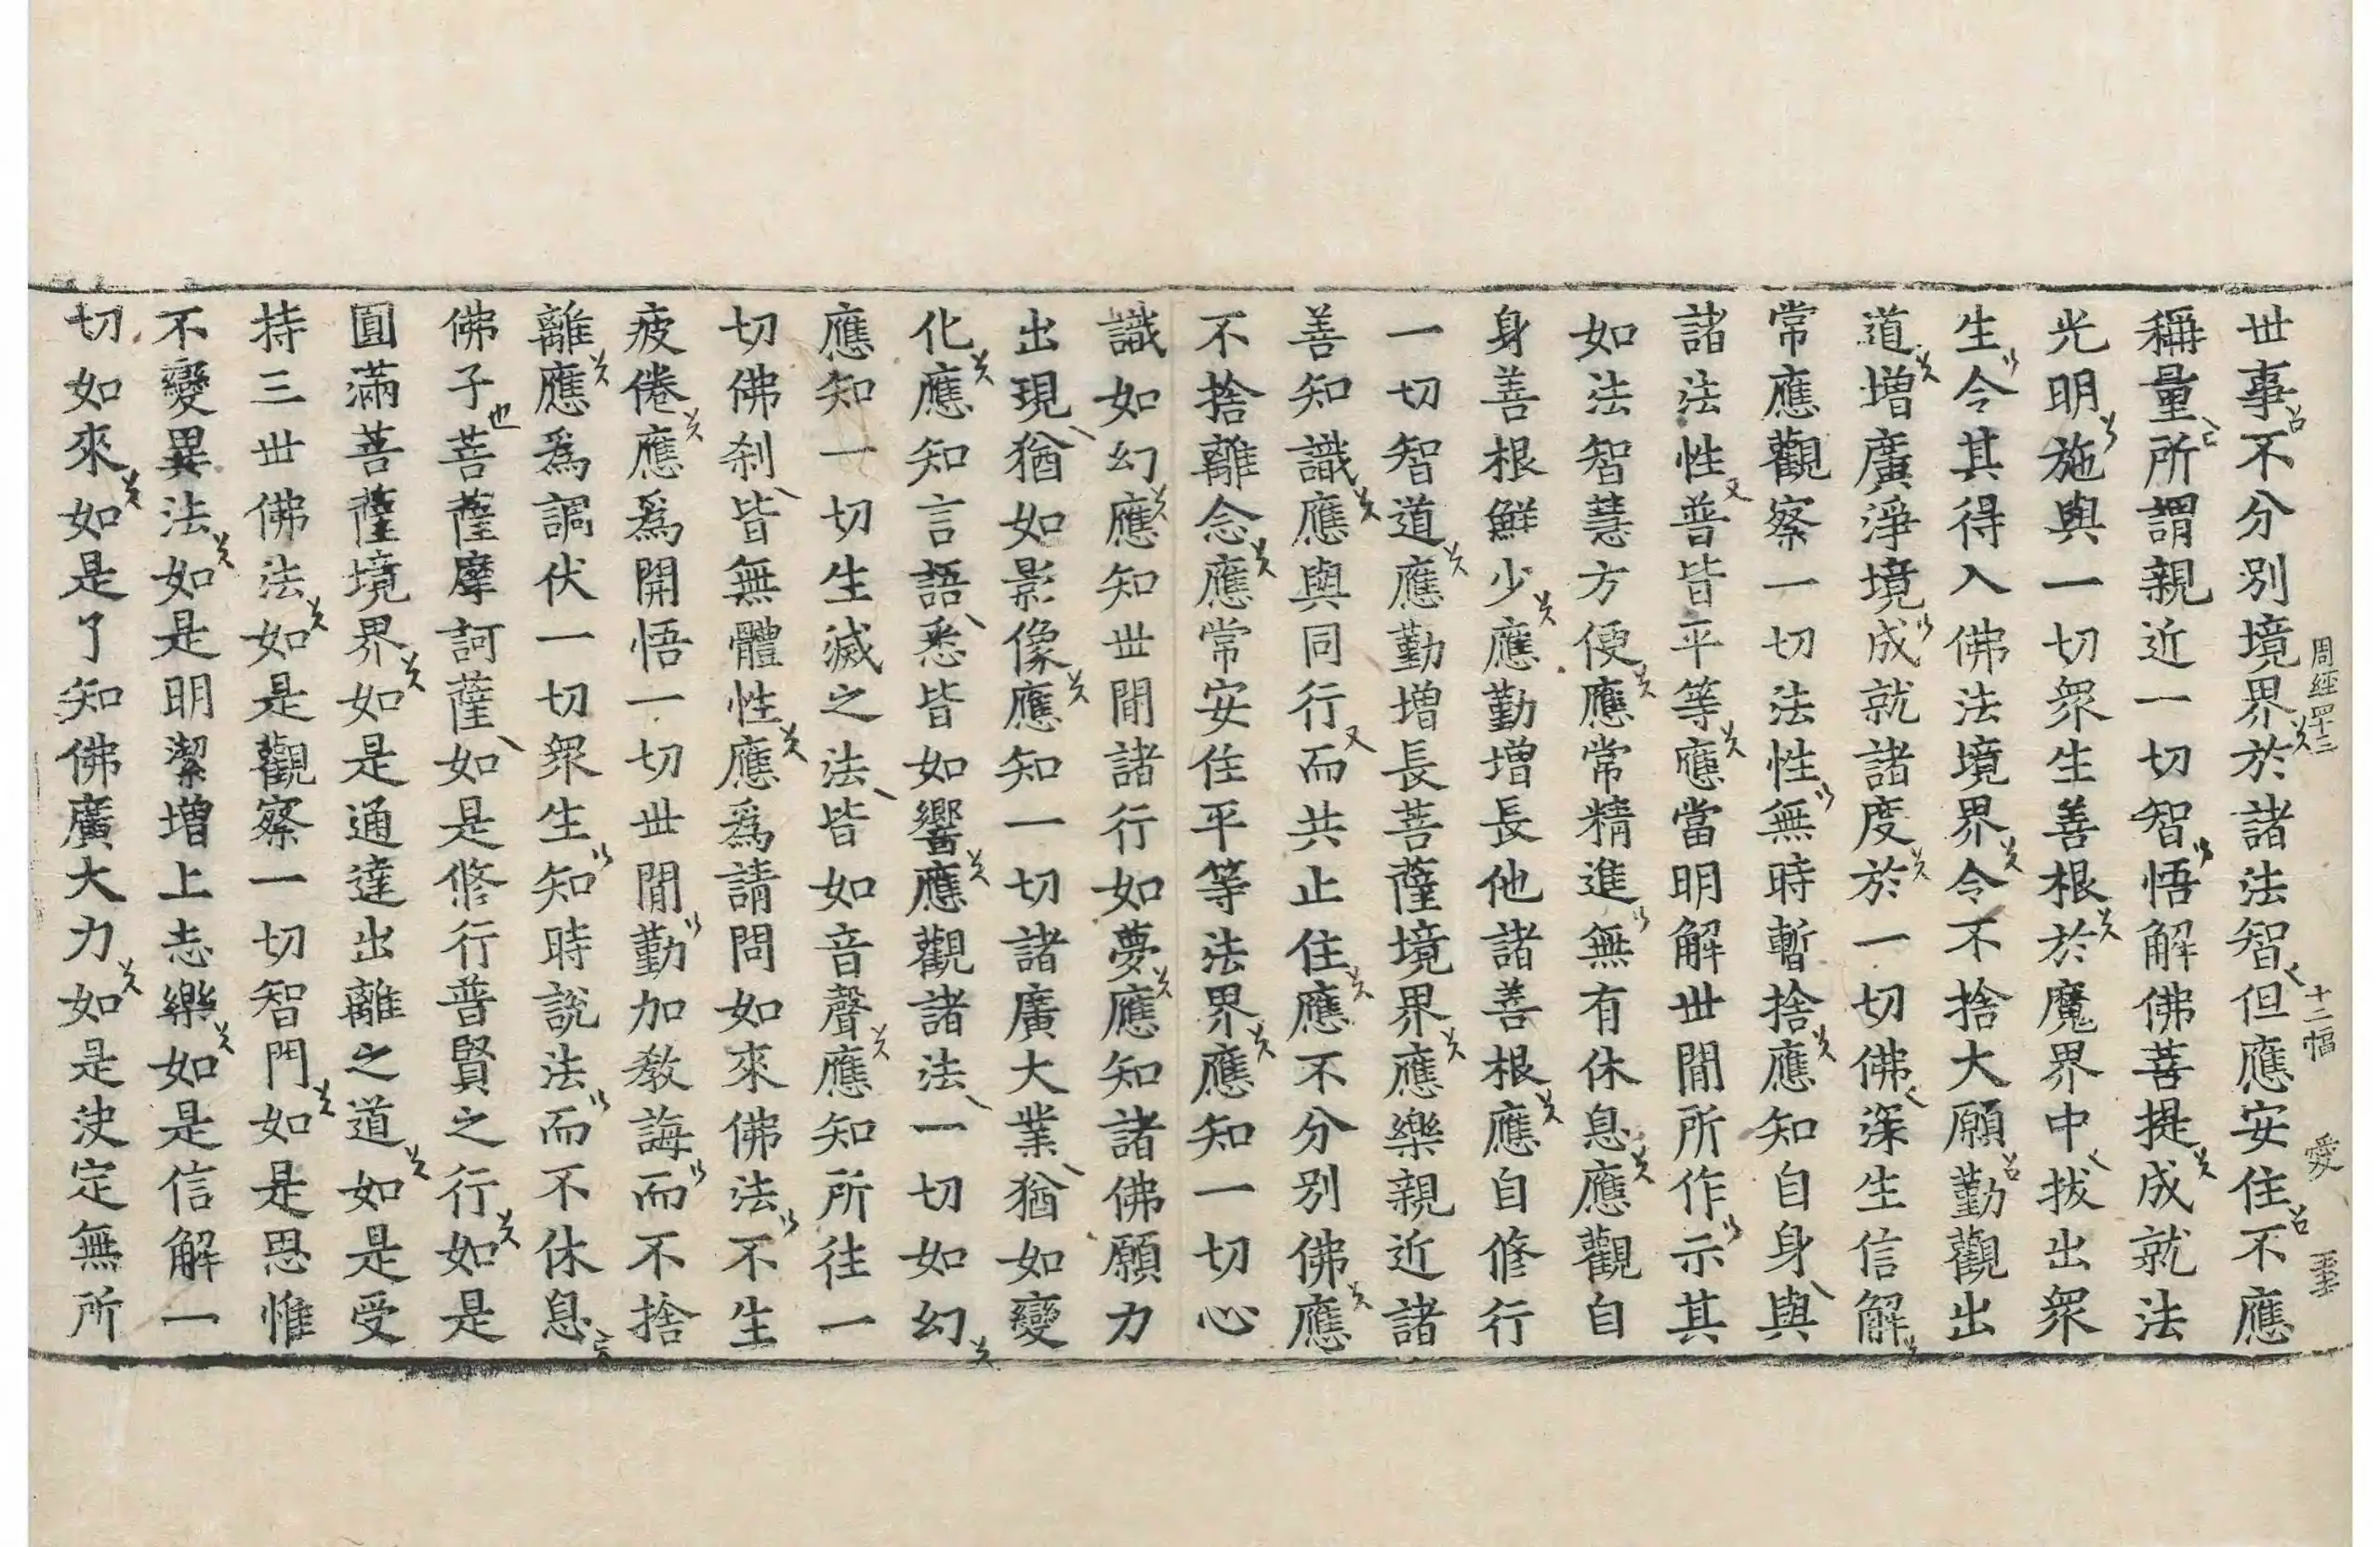 世事不分別境界於諸法智但應安住不應
稱量所謂親近一切智悟解佛菩提成就法
光明施與一切衆生善根於魔界中拔出衆
生令其得入佛法境界令不捨大願勤觀出
道增廣淨境成就諸度於一切佛深生信解
常應觀察一切法性無時暫捨應知自身與
諸法性普皆平等應當明解世間所作示其
如法智慧方便應常精進無有休息應觀自
身善根鮮少應勤增長他諸善根應自修行
一切智道應勤增長菩薩境界應樂親近諸
善知識應與同行而共止住應不分別佛應
不捨離念應常安住平等法界應知一切心
識如幻應知世間諸行如夢應知諸佛願力
出現猶如影像應知一切諸廣大業猶如變
化應知言語悉皆如響應觀諸法一切如幻
應知一切生滅之法皆如音聲應知所往一
切佛刹皆無體性應爲請問如來佛法不生
疲倦應爲開悟一切世間勤加教誨而不捨
離應爲調伏一切衆生知時說法而不休息
佛子菩薩摩訶薩如是修行普賢之行如是
圓滿菩薩境界如是通達出離之道如是受
持三世佛法如是觀察一切智門如是思惟
不變異法如是明潔增上志樂如是信解一
切如來如是了知佛廣大力如是決定無所
周經四十三 十二幅 愛